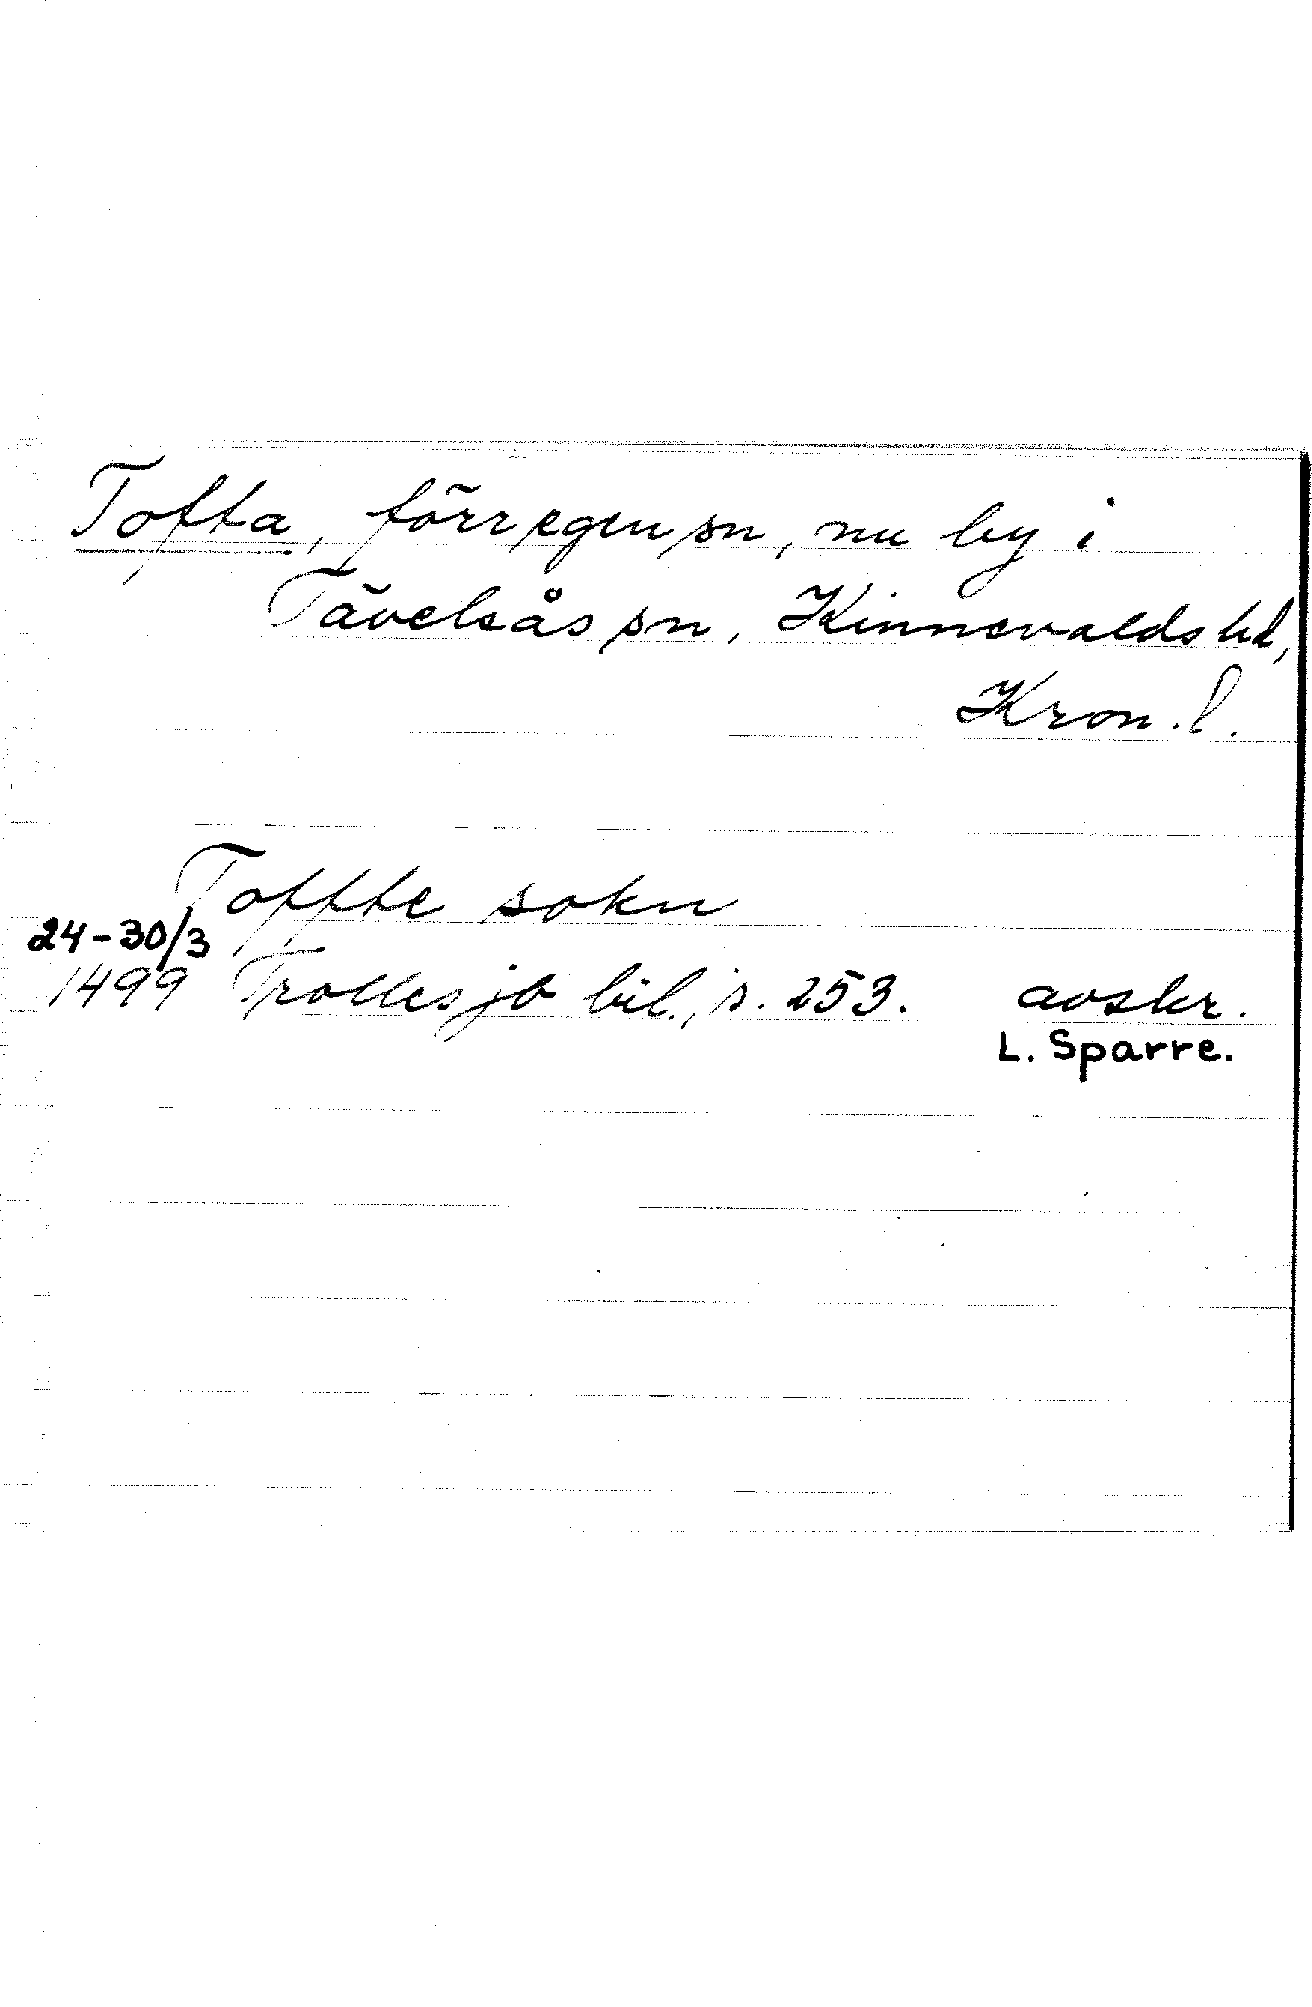 Tofta, förr egen sn, nu by i
Tävelsås sn, Kinnevalds hd,
Kron. l.
Toffte sokn
24-30/3
1499 Trollesjö bil., s. 253. avskr.
L. Sparre.